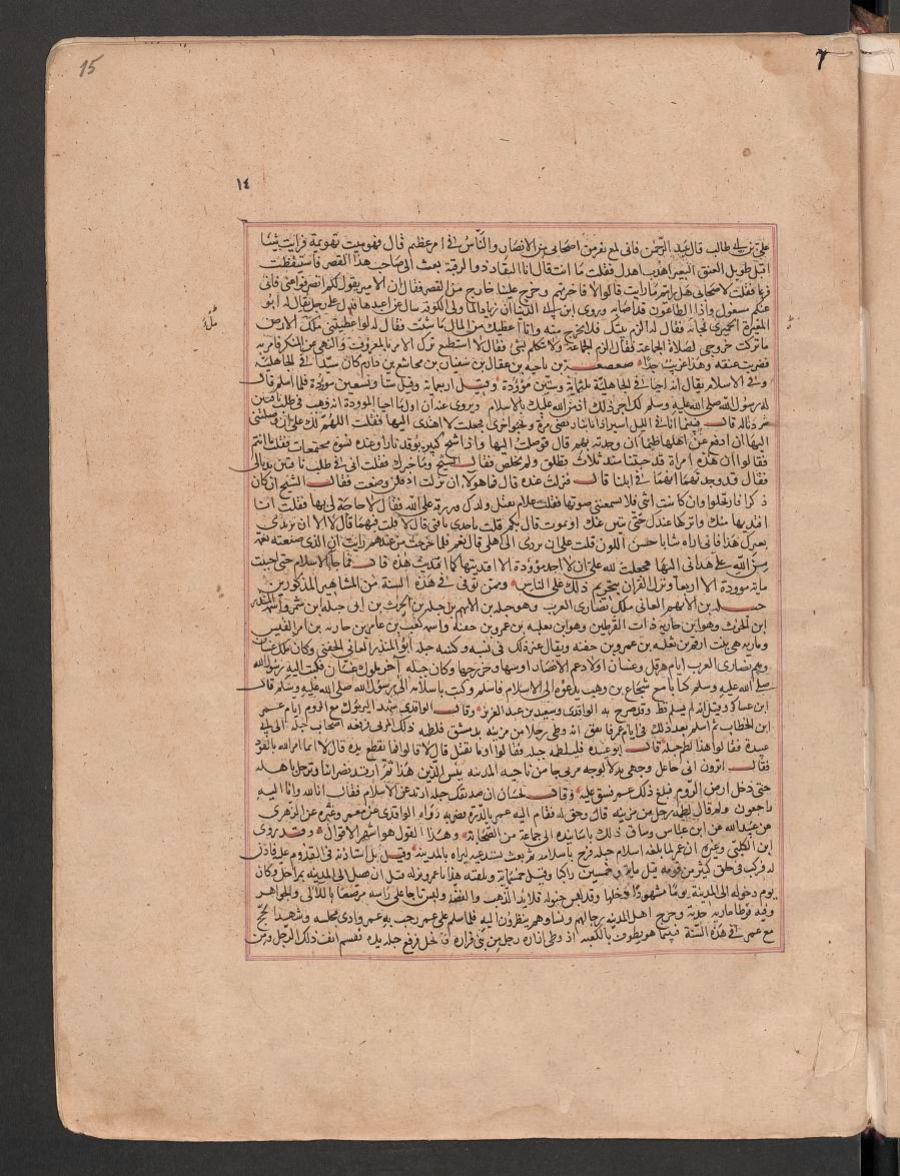 15
١٤
علي بن ابي طالب قال عبد الرحمن فاني لمع نفر من اصحابي من الانصار والناس في امر عظيم قال فهومت تهويمة فرايت شيئا
اقبل طويل العنق اهدب اهدل فقلت ما انت قال انا النقاد ذو الرقبة بعث الى صاحب هذا القصر فاستيقظت
فزعا فقلت لاصحابي هل رايتم ما رايت قالوا لا فاخبرتهم وخرج علينا خارج من القصر فقال ان الامير يقول لكم انصرفوا عني فاني
عنكم مشغول واذا الطاعون قد اصابه وروى ابن ابي الدنيا ان زيادا لما ولي الكوفة سال عن اعبدها فدل على رجل يقال له ابو
المغيرة الحميري فجاء به فقال له الزم بيتك فلا تخرج منه وانا اعطيك من المال ما شئت فقال له لو اعطيتني ملك الارض
ما تركت خروجي لصلاة الجماعة فقال الزم الجماعة ولا تتكلم بشئ فقال لا استطيع ترك الامر بالمعروف والنهي عن المنكر فامر به
فضربت عنقه وهذا غريب جدا صعصعة بن ناجية بن عقال بن سفيان بن مجاشع بن دارم كان سيدا في الجاهلية
وفي الاسلام يقال انه احيا في الجاهلية ثلثماية وستين مؤودة وقيل اربعماية وقيل ستا وتسعين موؤدة فلما اسلم قال
له رسول الله صلى الله عليه وسلم لك اجر ذلك اذ من الله عليك بالاسلام ويروى عنه ان اول ما احيا الموودة انه ذهب في طلب ناقتين
شردتا له قال فبينما انا في الليل اسير اذا انا بنار تضئ مرة وتخبو اخرى فجعلت لا اهتدي اليها فقلت اللهم لك علي ان اوصلتني
اليها ان ادفع عن اهلها ضيما ان وجدته بهم قال فوصلت اليها واذا شيخ كبير يوقد نارا وعنده نسوة مجتمعات فقلت ما انتم
فقالوا ان هذه امراة قد حبستنا منذ ثلاث تطلق ولم تخلص فقال الشيخ وما خبرك فقلت اني في طلب ناقتين ندتا لي
فقال قد وجدتهما انهما في ابلنا قال فنزلت عنده قال فما هو الا ان نزلت اذ قلن وضعت فقال الشيخ ان كان
ذكرا فارتحلوا وان كانت انثى فلا تسمعني صوتها فقلت علام تقتل ولدك ورزقه على الله فقال لا حاجة لي بها فقلت انا
افتديها منك واتركها عندك حتى تبين عنك او تموت قال بكم قلت باحدى ناقتي قال لا قلت فبهما قال لا الا ان تزيدني
بعيرك هذا فاني اراه شابا حسن اللون قلت على ان تردني الى اهلي قال نعم فلما خرجت من عندهم رايت ان الذي صنعته نعمة
من الله علي هداني اليها فجعلت لله علي ان لا اجد موؤدة الا افتديتها كما افتديت هذه قال فما جا الاسلام حتى احييت
ماية موودة الا اربعا ونزل القران بتحريم ذلك على الناس وممن توفي في هذه السنة من المشاهير المذكورين
جبلة بن الايهم الغساني ملك نصارى العرب وهو جبلة بن الايهم بن جبلة بن الحرث بن ابي جبلة ابن شمر واسمه المنذر
ابن الحرث وهو ابن مارية ذات القرطين وهو ابن ثعلبة بن عمرو بن جفنة واسمه كعب بن عامر بن حارثة بن امرئ القيس
ومارية هي بنت ارقم بن ثعلبة بن عمرو بن جفنة ويقال غير ذلك في نسبه وكنيته جبلة ابو المنذر الغساني الجفني وكان ملك غسان
وهم نصارى العرب ايام هرقل وغسان اولاد عم الانصار اوسها وخزرجها وكان جبلة آخر ملوك غسان فكتب اليه رسول الله
صلى الله عليه وسلم كتابا مع شجاع بن وهب يدعوه الى الاسلام فاسلم وكتب باسلامه الى رسول الله صلى الله عليه وسلم قال
ابن عساكر وقيل انه لم يسلم قط وقد صرح به الواقدي وسعيد بن عبد العزيز وقال الواقدي شهد اليرموك مع الروم ايام عمر
ابن الخطاب ثم اسلم بعد ذلك في ايام عمر فاتفق انه وطئ رجلا من مزينة بدمشق فلطمه ذلك المزني فرفعه اصحاب جبلة الى ابي
عبيدة فقالوا هذا لطم جبلة قال ابو عبيدة فليلطمه جبلة فقالوا اوما يقتل قال لا قالوا فما تقطع يده قال لا انما امر الله بالقود
فقال اترون اني جاعل وجهي بدلا لوجه مزني جا من ناحية المدينة بئس الدين هذا ثم ارتد نصرانيا وترحل باهله
حتى دخل ارض الروم فبلغ ذلك عمر فشق عليه وقال لحسان ان صديقك جبلة ارتد عن الاسلام فقال انا لله وانا اليه
راجعون ولم قال لطمه رجل من مزينة قال وحق له فقام اليه عمر بالدرة فضربه رواه الواقدي عن معمر وغيره عن الزهري
عن عبيد الله عن ابن عباس وساق ذلك باسانيده الى جماعة من الصحابة وهذا القول هو اشهر الاقوال وقد روى
ابن الكلبي وغيره ان عمر لما بلغه اسلام جبلة فرح باسلامه ثم بعث يستدعيه ليراه بالمدينة وقيل بل استاذنه في القدوم عليه فاذن
له فركب في خلق كثير من قومه قيل ماية وخمسين راكبا وقيل خمسماية وتلقته هدايا عمر ونزله قبل ان يصل الى المدينة بمراحل وكان
يوم دخوله الى المدينة يوما مشهودا دخلها وقد البس خيوله قلايد الذهب والفضة ولبس تاجا على راسه مرصعا باللآلي والجواهر
وفيه قرطا مارية جدته وخرج اهل المدينة رجالهم ونساؤهم ينظرون اليه فلما سلم على عمر رحب به عمر وادنى مجلسه وشهد الحج
مع عمر في هذه السنة فبينما هو يطوف بالكعبة اذ وطئ ازاره رجل من بني فزارة فانحل فرفع جبلة يده فهشم انف ذلك الرجل ومن